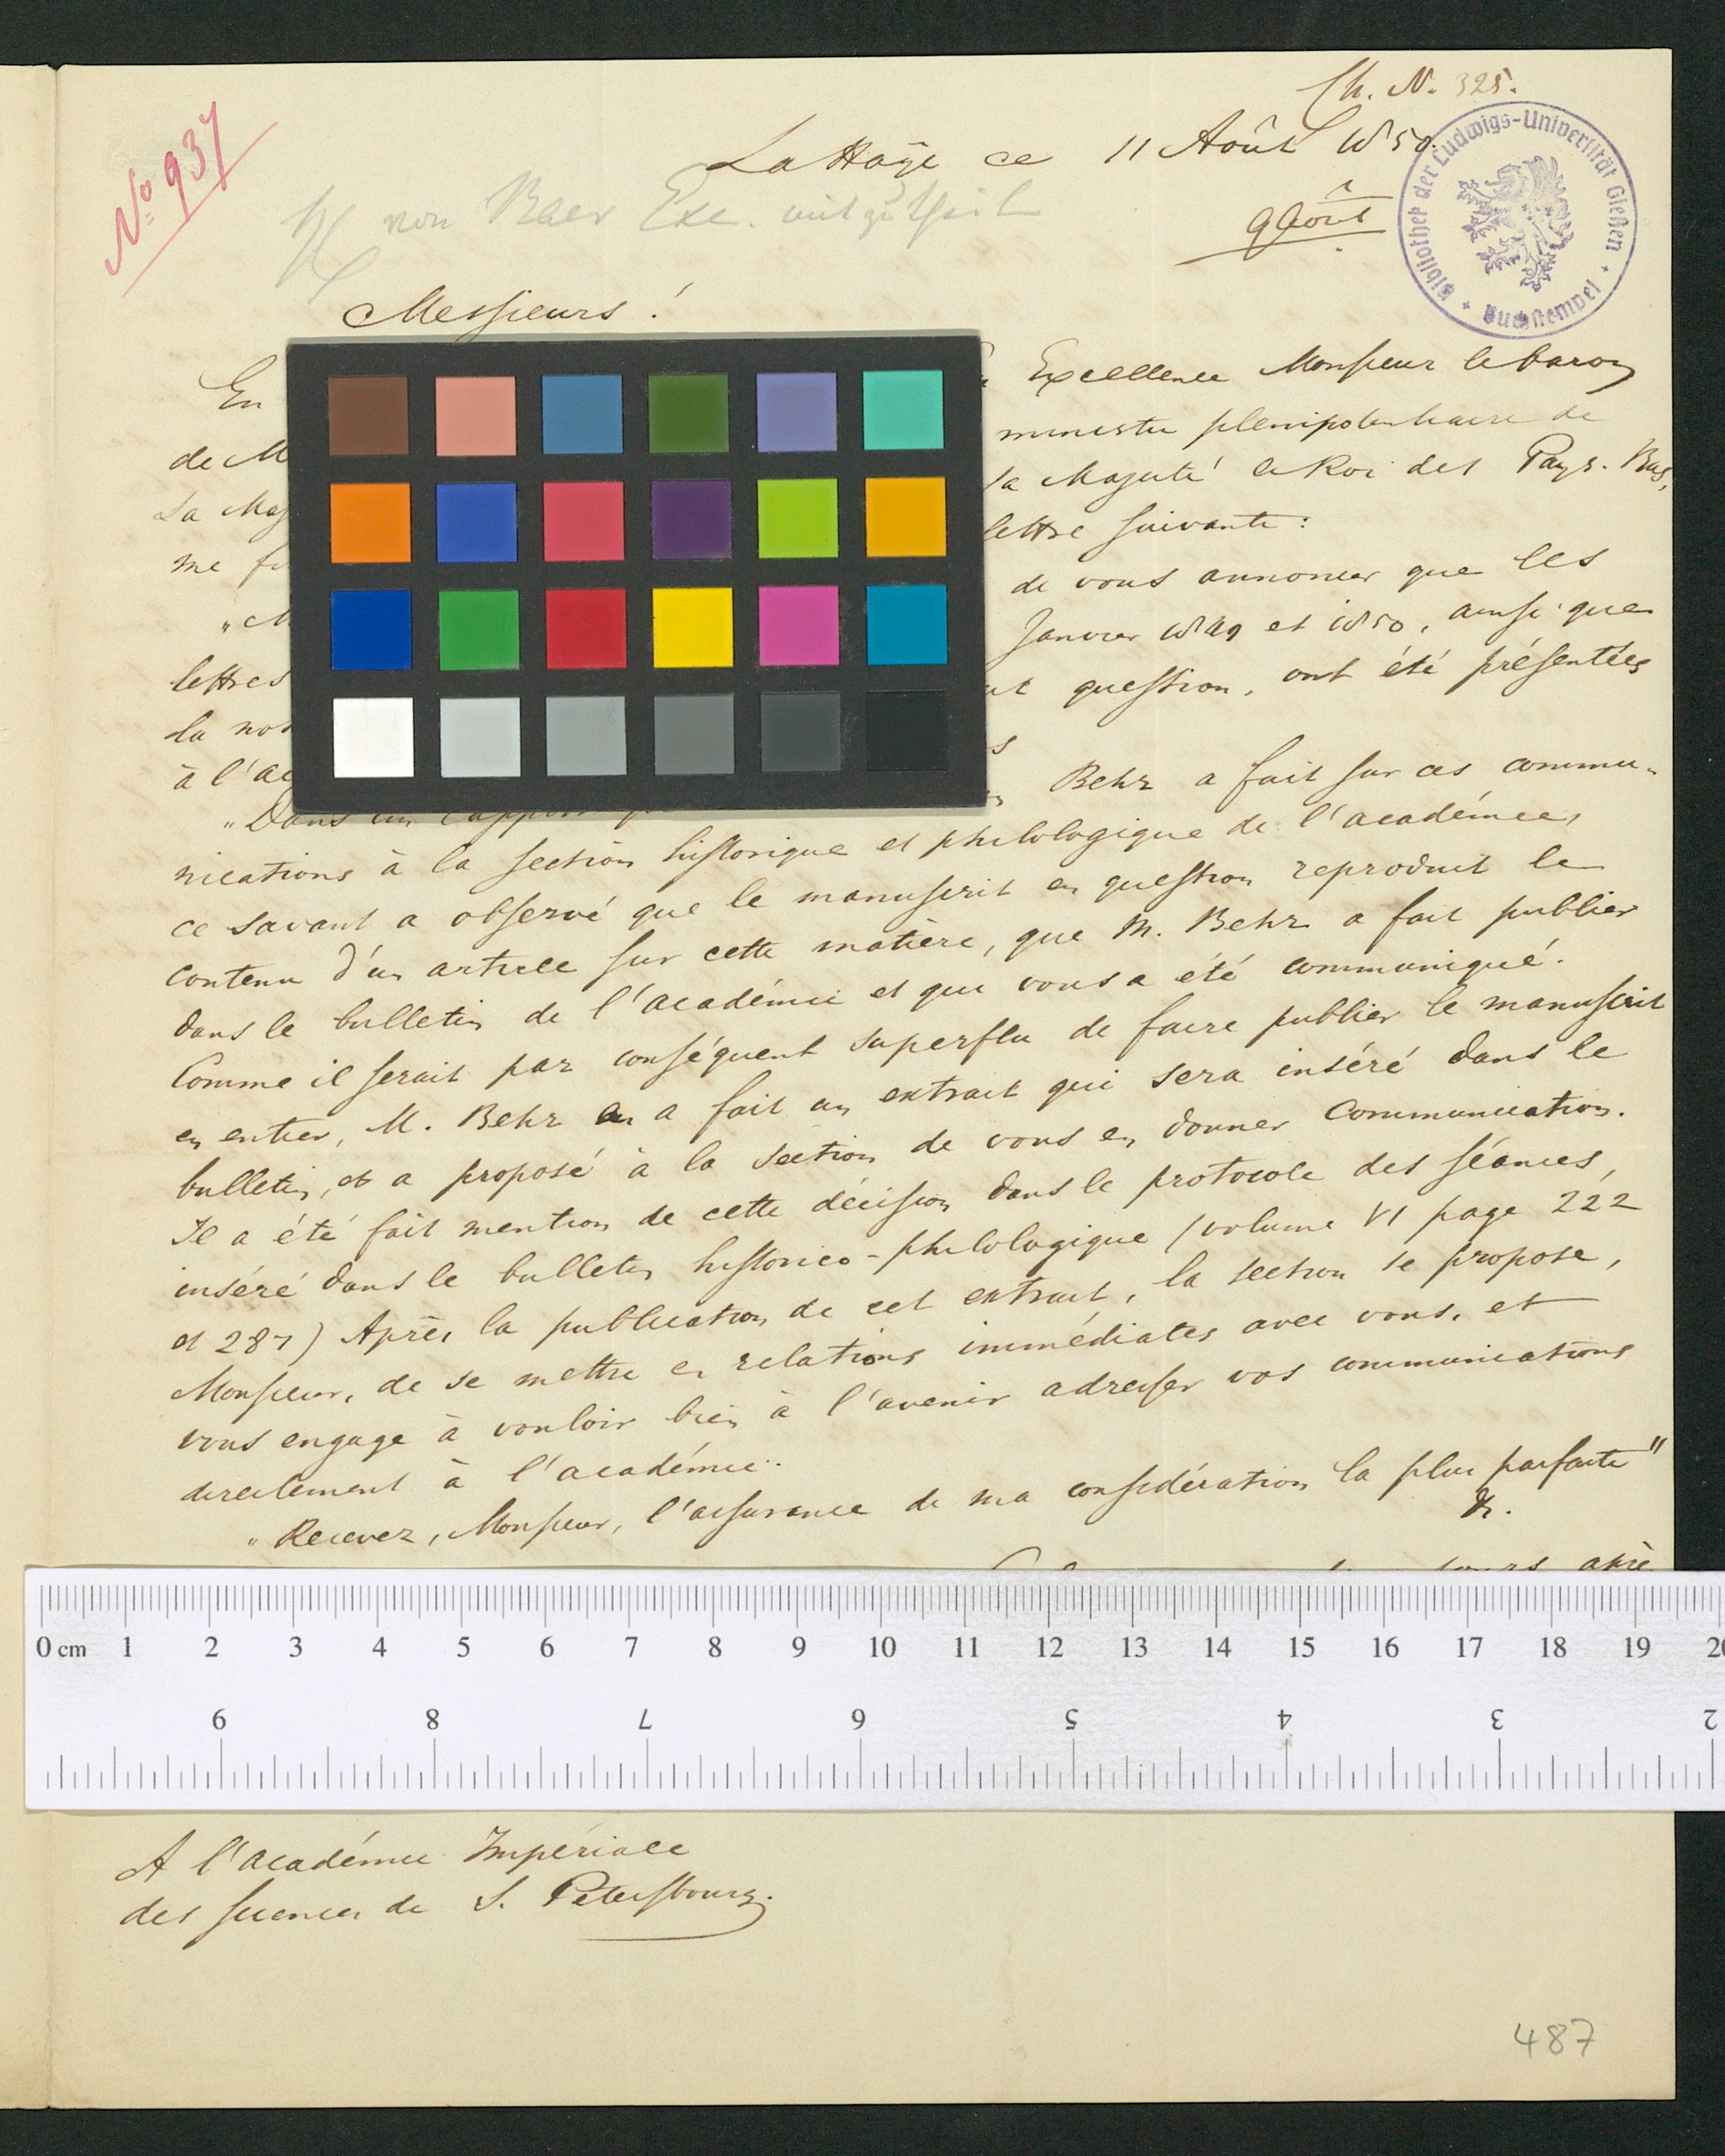 Ch. N. 325.
No 937
La Haÿe ce 11 Août 1850.
9 Août
von Baer Exc.
Bibliothek der Ludwigs-Universität Gießen
Buchstempel
Messieurs!
En Excellence Monsieur le baron
de M ministre plenipotentiaire de
Sa Maj sa Majesté le Roi des Pays-Bas,
me lettre suivante:
de vous annoncer que les
lettres Janvier 1849 et 1850, ainsi que
la not question, ont été présentées
à l'ac
„Dans un rapport Behr a fait sur ces commu-
nications à la section historique et philologique de l'académie,
ce savant a observé que le manuscrit en question reproduit le
contenu d'un article sur cette matière, que M. Behr a fait publier
dans le bulletin de l'académie et qui vous a été communiqué.
Comme il serait par conséquent superflu de faire publier le manuscrit
en entier, M. Behr en a fait un extrait qui sera inséré dans le
bulletin, et a proposé à la section de vous en donner communication.
Il a été fait mention de cette décision dans le protocole des séances,
inséré dans le bulletin historico-philologique (volume VI page 222
et 287) Après la publication de cet extrait, la section se propose,
Monsieur, de se mettre en relations immédiates avec vous, et
vous engage à vouloir bien à l'avenir adresser vos communications
directement à l'académie.
„Recevez, Monsieur, l'assurance de ma considération la plus parfaite"
&.
0 cm 1 2 3 4 5 6 7 8 9 10 11 12 13 14 15 16 17 18 19 20
9 8 7 6 5 4 3 2
A l'académie Impériale
des sciences de S. Petersbourg.
487